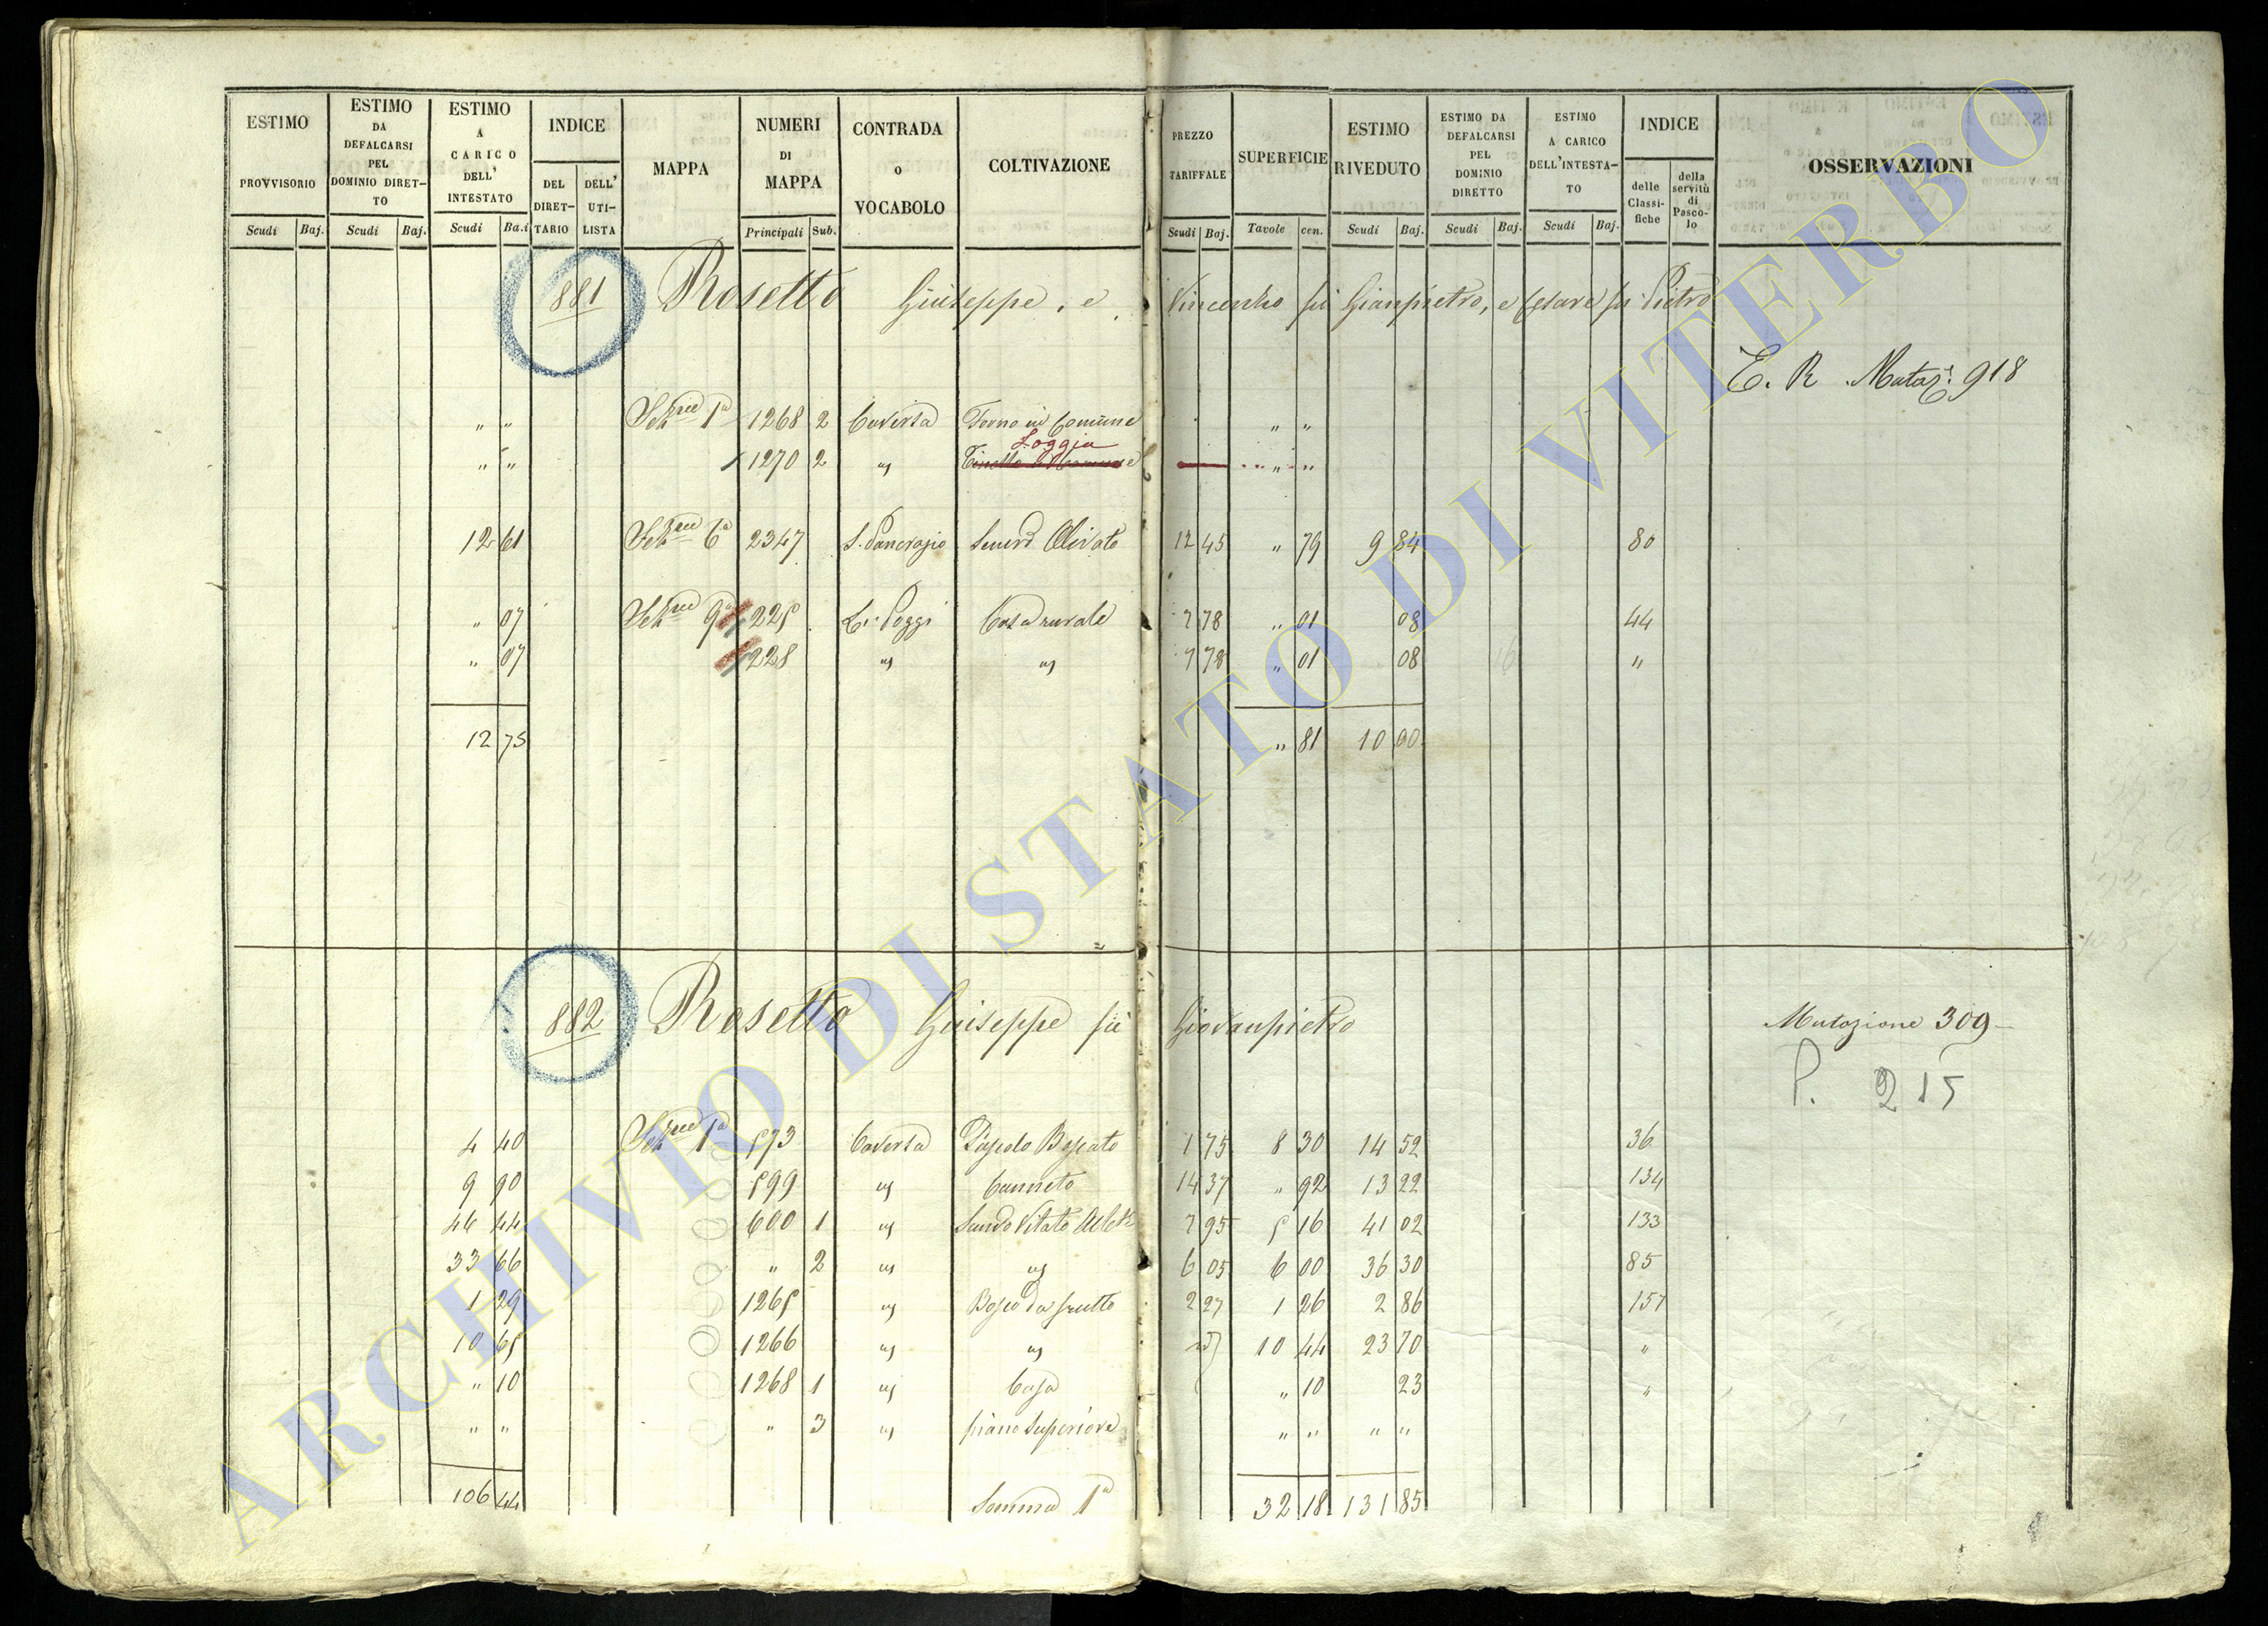 ESTIMO PROVVISORIO | ESTIMO DA DEFALCARSI PEL DOMINIO DIRET-TO | ESTIMO A CARICO DELL' INTESTATO | INDICE | MAPPA | NUMERI DI MAPPA | CONTRADA o VOCABOLO | COLTIVAZIONE | PREZZO TARIFFALE | SUPERFICIE | ESTIMO RIVEDUTO | ESTIMO DA DEFALCARSI PEL DOMINIO DIRETTO | ESTIMO A CARICO DELL'INTESTA-TO | INDICE | OSSERVAZIONI
DEL DIRET-TARIO | DELL' UTI-LISTA | delle Classi-fiche | della servitù di Pasco-lo
Scudi | Baj. | Scudi | Baj. | Scudi | Ba.i | Principali | Sub. | Scudi | Baj. | Tavole | cen. | Scudi | Baj. | Scudi | Baj. | Scudi | Baj.
881 Rosetto Giuseppe, e Vincenzo fù Gianpietro, e Cesare fù Pietro
E. R. Mutaz.e 918
" " 1ª 1268 2 Caversa Forno in Comune " "
Loggia
" " 1270 2 " " "
12 61 6ª 2347 S. Pancrazio Olivato 12 45 " 79 9 84 80
" 07 9ª 225 Li Poggi Casa rurale 7 78 " 01 08 44
" 07 228 " " 7 78 " 01 08 "
12 75 " 81 10 00
882 Rosetto Giuseppe fù Giovanpietro
Mutazione 309
P. 215
4 40 1ª 573 Caversa Pascolo Boscato 1 75 8 30 14 52 36
9 90 599 " Canneto 14 37 " 92 13 22 134
46 44 600 1 " Vitato 7 95 5 16 41 02 133
33 66 " 2 " " 6 05 6 00 36 30 85
1 29 1265 " Bosco da frutto 2 27 1 26 2 86 157
10 65 1266 " " 10 44 23 70 "
" 10 1268 1 " Casa " 10 23 "
" " " 3 " piano Superiore " " " "
106 44 Somma 1ª 32 18 131 85
ARCHIVIO DI STATO DI VITERBO